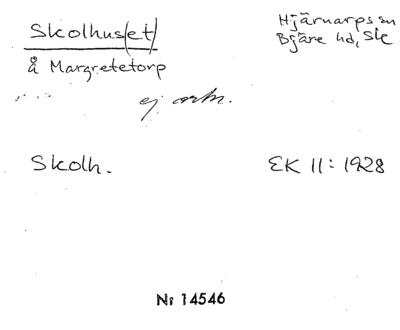 Skolhus(et)
Hjärnarps sn
å Margretetorp
Bjäre hd, Sk
ej ortn.
Skolh.
EK II: 1928
Nr 14546